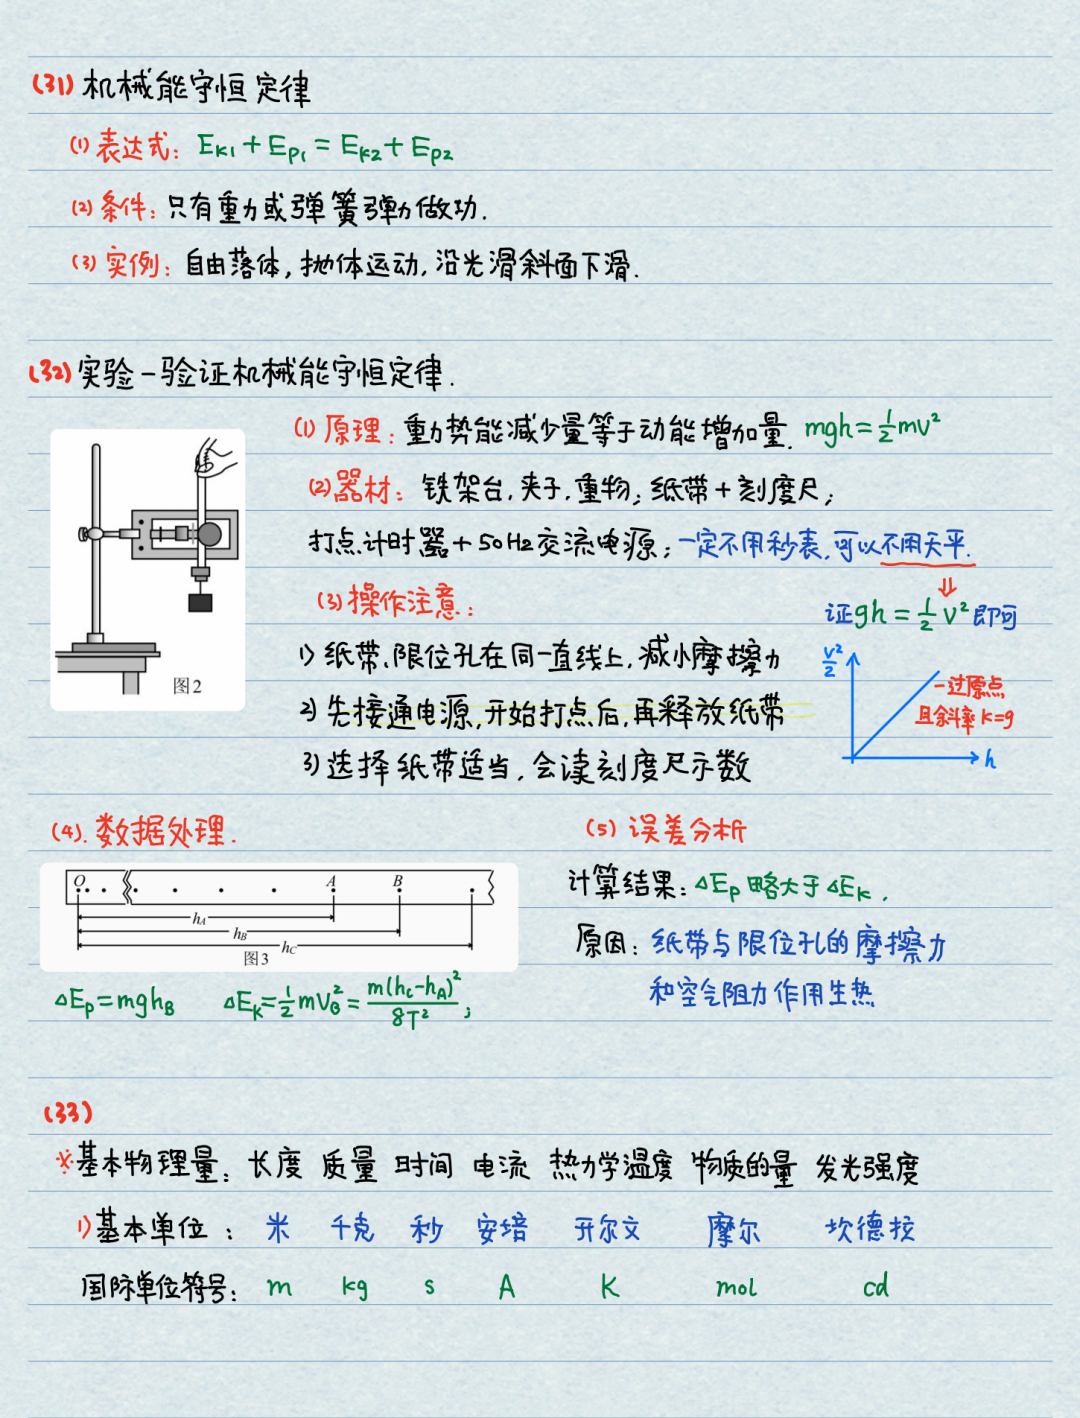 (31) 机械能守恒定律
(1) 表达式: Ek1 + Ep1 = Ek2 + Ep2
(2) 条件: 只有重力或弹簧弹力做功.
(3) 实例: 自由落体, 抛体运动, 沿光滑斜面下滑.
(32) 实验-验证机械能守恒定律.
(1) 原理: 重力势能减少量等于动能增加量. mgh = ½mv²
(2) 器材: 铁架台, 夹子, 重物; 纸带 + 刻度尺;
打点计时器 + 50Hz交流电源; 一定不用秒表, 可以不用天平.
⇓
证gh = ½v²即可
(3) 操作注意:
1) 纸带、限位孔在同一直线上, 减小摩擦力
2) 先接通电源, 开始打点后, 再释放纸带
3) 选择纸带适当, 会读刻度尺示数
图2
v²/2
-过原点
且斜率 k=g
h
(4). 数据处理.
O A B
hA
hB
hC
图3
△Ep = mghB △Ek = ½mvB² = m(hc-hA)²/8T² ;
(5) 误差分析
计算结果: △Ep 略大于 △Ek .
原因: 纸带与限位孔的摩擦力
和空气阻力作用生热
(33)
※基本物理量: 长度 质量 时间 电流 热力学温度 物质的量 发光强度
1) 基本单位: 米 千克 秒 安培 开尔文 摩尔 坎德拉
国际单位符号: m kg s A K mol cd